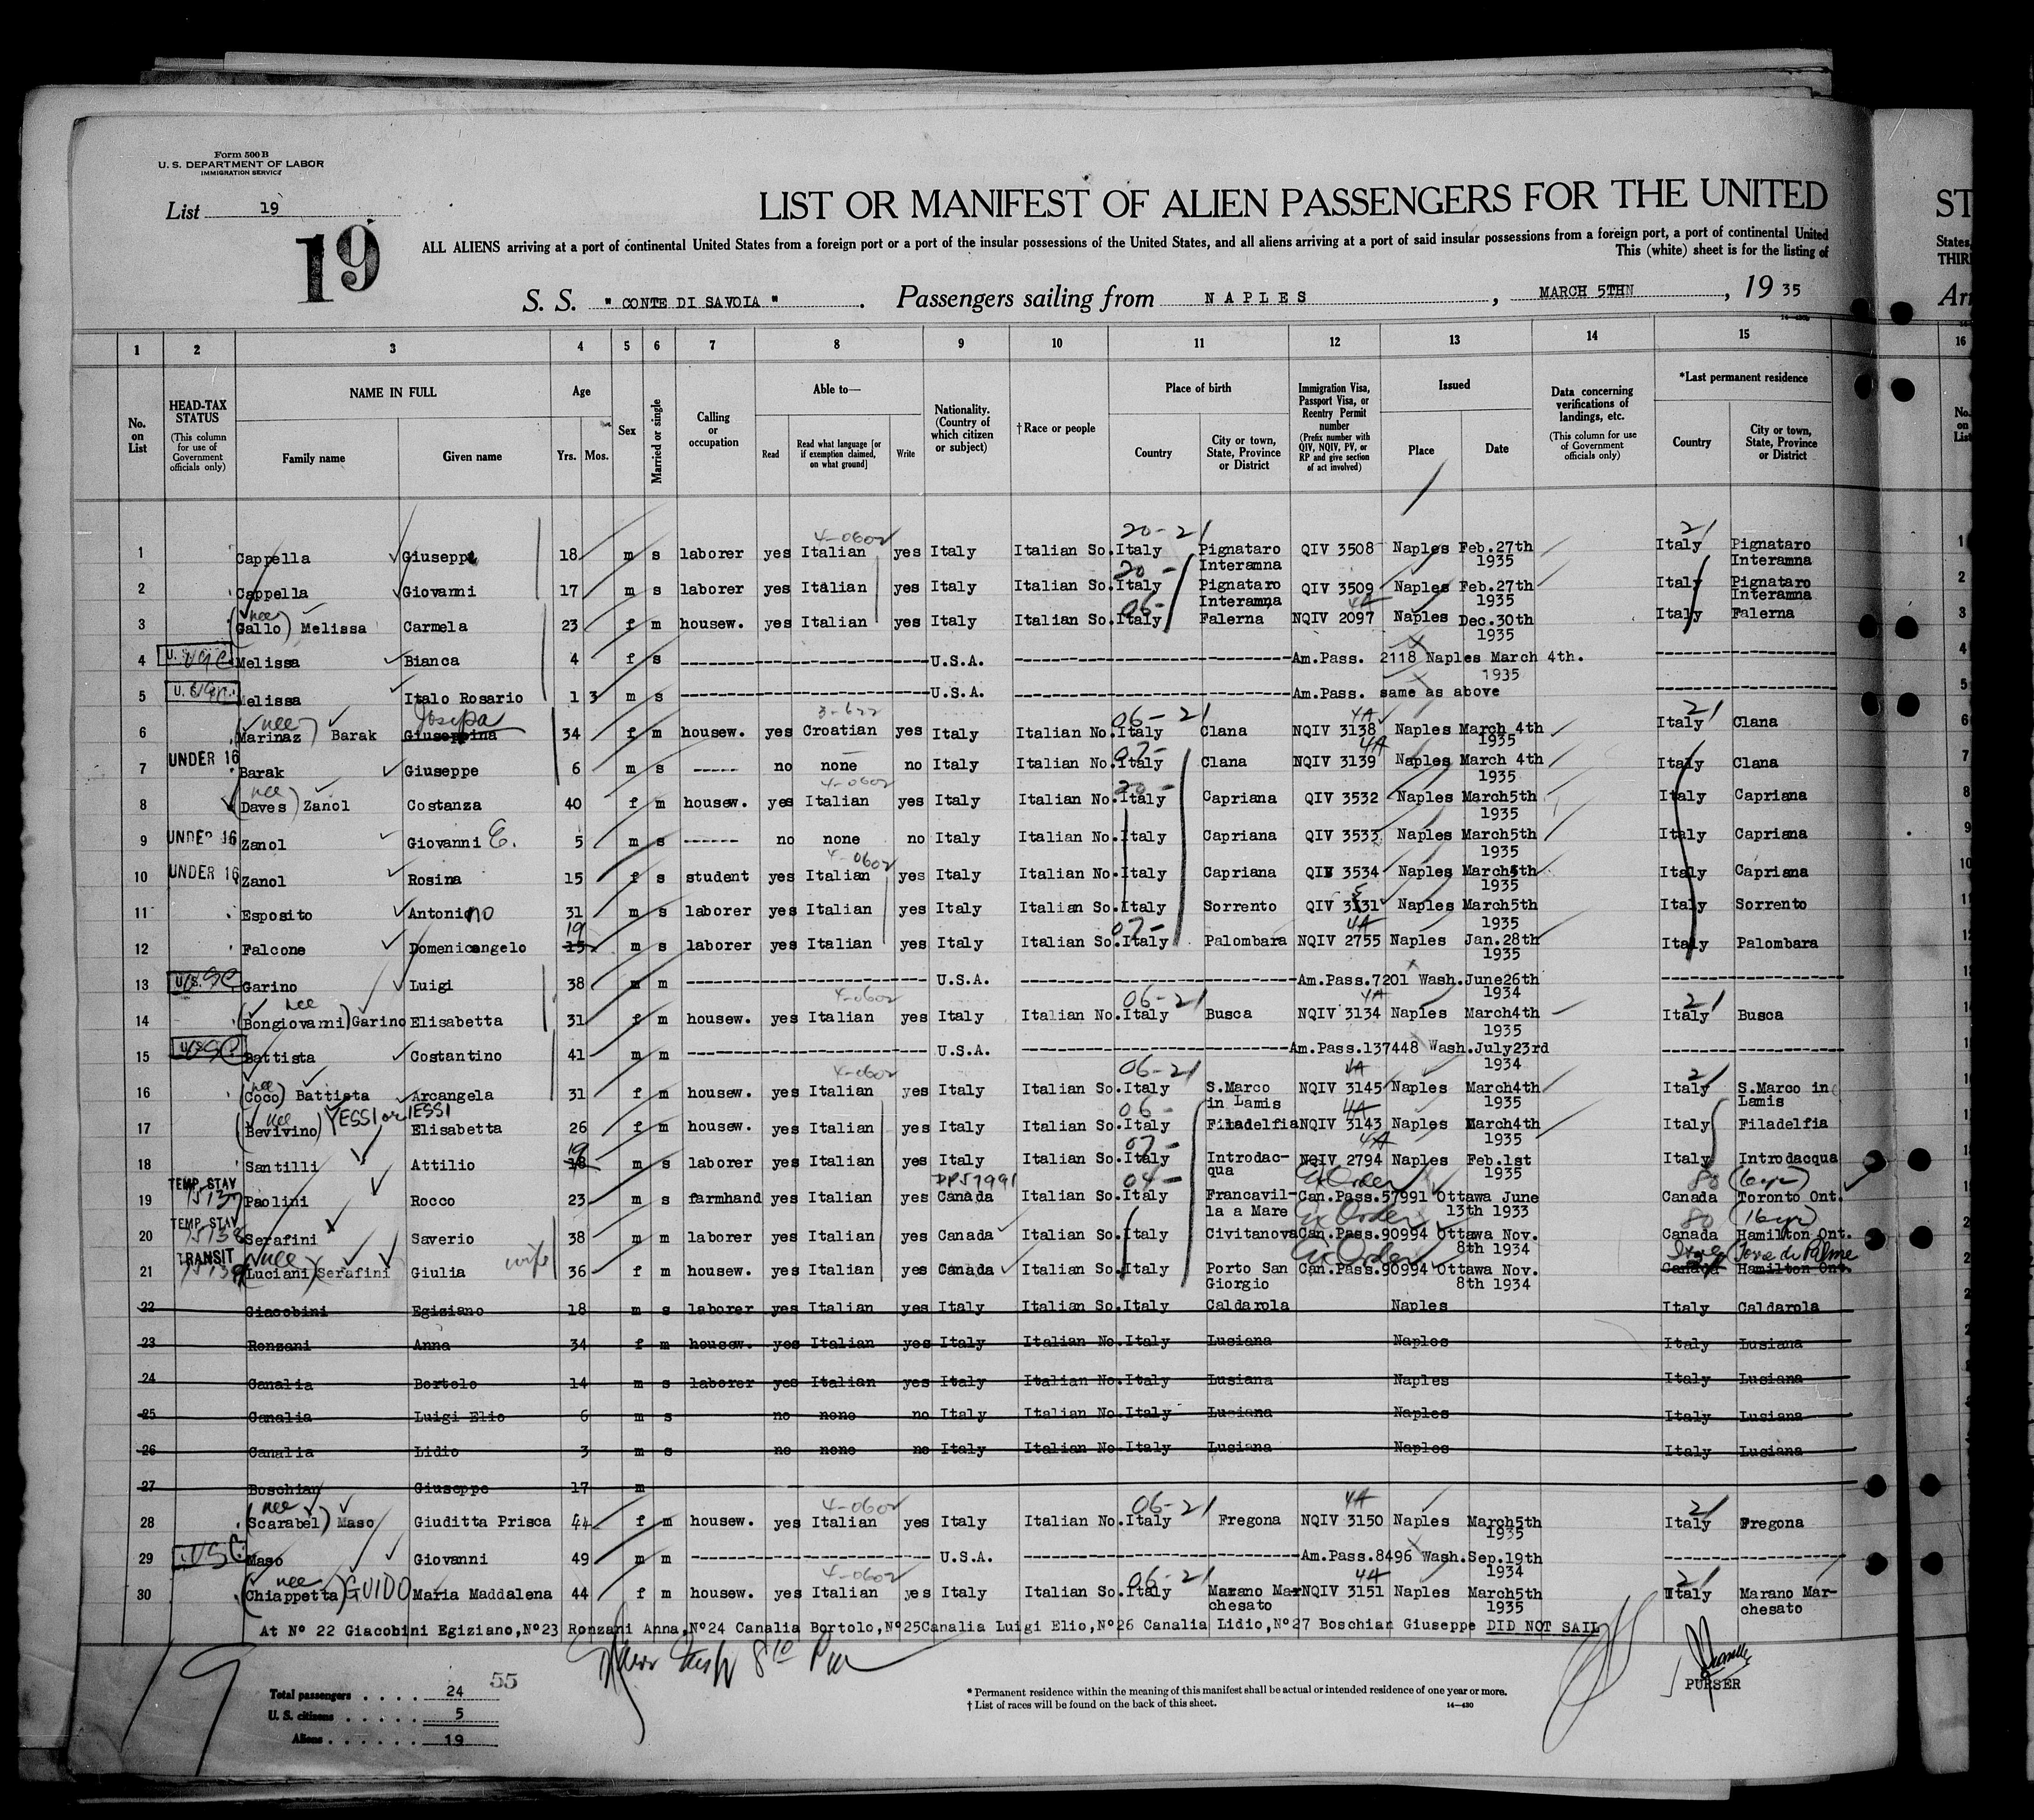 Form 500 B
U. S. DEPARTMENT OF LABOR
IMMIGRATION SERVICE
List 19
19
LIST OR MANIFEST OF ALIEN PASSENGERS FOR THE UNITED
ST
ALL ALIENS arriving at a port of continental United States from a foreign port or a port of the insular possessions of the United States, and all aliens arriving at a port of said insular possessions from a foreign port, a port of continental United
States,
This (white) sheet is for the listing of
THIR
S. S. " CONTE DI SAVOIA " . Passengers sailing from N A P L E S , MARCH 5THN , 19 35
Arr
1 2 3 4 5 6 7 8 9 10 11 12 13 14 15 16
No. on List
HEAD-TAX STATUS (This column for use of Government officials only)
NAME IN FULL Family name Given name
Age Yrs. Mos.
Sex
Married or single
Calling or occupation
Able to— Read Read what language [or if exemption claimed, on what ground] Write
Nationality. (Country of which citizen or subject)
†Race or people
Place of birth Country City or town, State, Province or District
Immigration Visa, Passport Visa, or Reentry Permit number (Prefix number with QIV, NQIV, PV, or RP and give section of act involved)
Issued Place Date
Data concerning verifications of landings, etc. (This column for use of Government officials only)
*Last permanent residence Country City or town, State, Province or District
No. on List
4-0602 20-21 21
1 Cappella Giuseppe 18 m s laborer yes Italian yes Italy Italian So. Italy Pignataro Interamna QIV 3508 Naples Feb.27th 1935 Italy Pignataro Interamna 1
20-
2 Cappella Giovanni 17 m s laborer yes Italian yes Italy Italian So. Italy Pignataro Interamna QIV 3509 Naples Feb.27th 1935 Italy Pignataro Interamna 2
nee 06- 4A
3 (Gallo) Melissa Carmela 23 f m housew. yes Italian yes Italy Italian So. Italy Falerna NQIV 2097 Naples Dec.30th 1935 Italy Falerna 3
4 USC Melissa Bianca 4 f s U.S.A. Am.Pass. 2118 Naples March 4th. 1935 4
5 Melissa Italo Rosario 1 3 m s U.S.A. Am.Pass. same as above 5
nee Josipa 3-622 06-21 4A 21
6 (Marinaz) Barak Giuseppina 34 f m housew. yes Croatian yes Italy Italian No. Italy Clana NQIV 3138 Naples March 4th 1935 Italy Clana 6
UNDER 16 07- 4A
7 Barak Giuseppe 6 m s ----- no none no Italy Italian No. Italy Clana NQIV 3139 Naples March 4th 1935 Italy Clana 7
nee 4-0602 20-
8 (Daves) Zanol Costanza 40 f m housew. yes Italian yes Italy Italian No. Italy Capriana QIV 3532 Naples March5th 1935 Italy Capriana 8
9 UNDER 16 Zanol Giovanni E. 5 m s ------ no none no Italy Italian No. Italy Capriana QIV 3533 Naples March5th 1935 Italy Capriana 9
4-0602
10 UNDER 16 Zanol Rosina 15 f s student yes Italian yes Italy Italian No. Italy Capriana QIV 3534 Naples March5th 1935 Italy Capriana 10
11 Esposito Antonino 31 m s laborer yes Italian yes Italy Italian So. Italy Sorrento QIV 3531 Naples March5th 1935 Italy Sorrento 11
19 07- 4A
12 Falcone Domenicangelo 15 m s laborer yes Italian yes Italy Italian So. Italy Palombara NQIV 2755 Naples Jan.28th 1935 Italy Palombara 12
13 USC Garino Luigi 38 m m U.S.A. Am.Pass.7201 Wash.June26th 1934 13
nee 4-0602 06-21 4A 21
14 (Bongiovanni) Garino Elisabetta 31 f m housew. yes Italian yes Italy Italian No. Italy Busca NQIV 3134 Naples March4th 1935 Italy Busca 14
15 USC Battista Costantino 41 m m U.S.A. Am.Pass.137448 Wash.July23rd 1934
nee 4-0602 06-21 4A 21
16 (Coco) Battista Arcangela 31 f m housew. yes Italian yes Italy Italian So. Italy S.Marco in Lamis NQIV 3145 Naples March4th 1935 Italy S.Marco in Lamis
nee YESSI or IESSI 06- 4A
17 (Bevivino) Elisabetta 26 f m housew. yes Italian yes Italy Italian So. Italy Filadelfia NQIV 3143 Naples March4th 1935 Italy Filadelfia
19 07- 4A
18 Santilli Attilio 18 m s laborer yes Italian yes Italy Italian So. Italy Introdac-qua NQIV 2794 Naples Feb.1st 1935 Italy Introdacqua
TEMP. STAY DP57991 04- Ex Order 80 (6 yr)
19 Paolini Rocco 23 m s farmhand yes Italian yes Canada Italian So. Italy Francavil-la a Mare Can.Pass.57991 Ottawa June 13th 1933 Canada Toronto Ont.
TEMP. STAY Ex Order 80 (16 yr)
20 Serafini Saverio 38 m m laborer yes Italian yes Canada Italian So. Italy Civitanova Can.Pass.90994 Ottawa Nov. 8th 1934 Canada Hamilton Ont.
TRANSIT nee wife Ex Order
21 (Luciani) Serafini Giulia 36 f m housew. yes Italian yes Canada Italian So. Italy Porto San Giorgio Can.Pass.90994 Ottawa Nov. 8th 1934 Canada Hamilton Ont.
22 Giacobini Egiziano 18 m s laborer yes Italian yes Italy Italian So. Italy Caldarola Naples Italy Caldarola
23 Ronzani Anna 34 f m housew. yes Italian yes Italy Italian No. Italy Lusiana Naples Italy Lusiana
24 Canalia Bortolo 14 m s laborer yes Italian yes Italy Italian No. Italy Lusiana Naples Italy Lusiana
25 Canalia Luigi Elio 6 m s no none no Italy Italian No. Italy Lusiana Naples Italy Lusiana
26 Canalia Lidio 3 m s no none no Italy Italian No. Italy Lusiana Naples Italy Lusiana
27 Boschian Giuseppe 17 m
nee 4-0602 06-21 4A 21
28 (Scarabel) Maso Giuditta Prisca 44 f m housew. yes Italian yes Italy Italian No. Italy Fregona NQIV 3150 Naples March5th 1935 Italy Fregona
29 USC Maso Giovanni 49 m m U.S.A. Am.Pass.8496 Wash.Sep.19th 1934
nee 4-0602 06-21 4A 21
30 (Chiappetta) GUIDO Maria Maddalena 44 f m housew. yes Italian yes Italy Italian So. Italy Marano Mar-chesato NQIV 3151 Naples March5th 1935 Italy Marano Mar-chesato
At Nº 22 Giacobini Egiziano,Nº23 Ronzani Anna,Nº24 Canalia Bortolo,Nº25Canalia Luigi Elio,Nº26 Canalia Lidio,Nº27 Boschian Giuseppe DID NOT SAIL
19
Total passengers . . . . 24 55
U. S. citizens . . . . . 5
Aliens . . . . . . 19
* Permanent residence within the meaning of this manifest shall be actual or intended residence of one year or more.
† List of races will be found on the back of this sheet. 14—430
PURSER